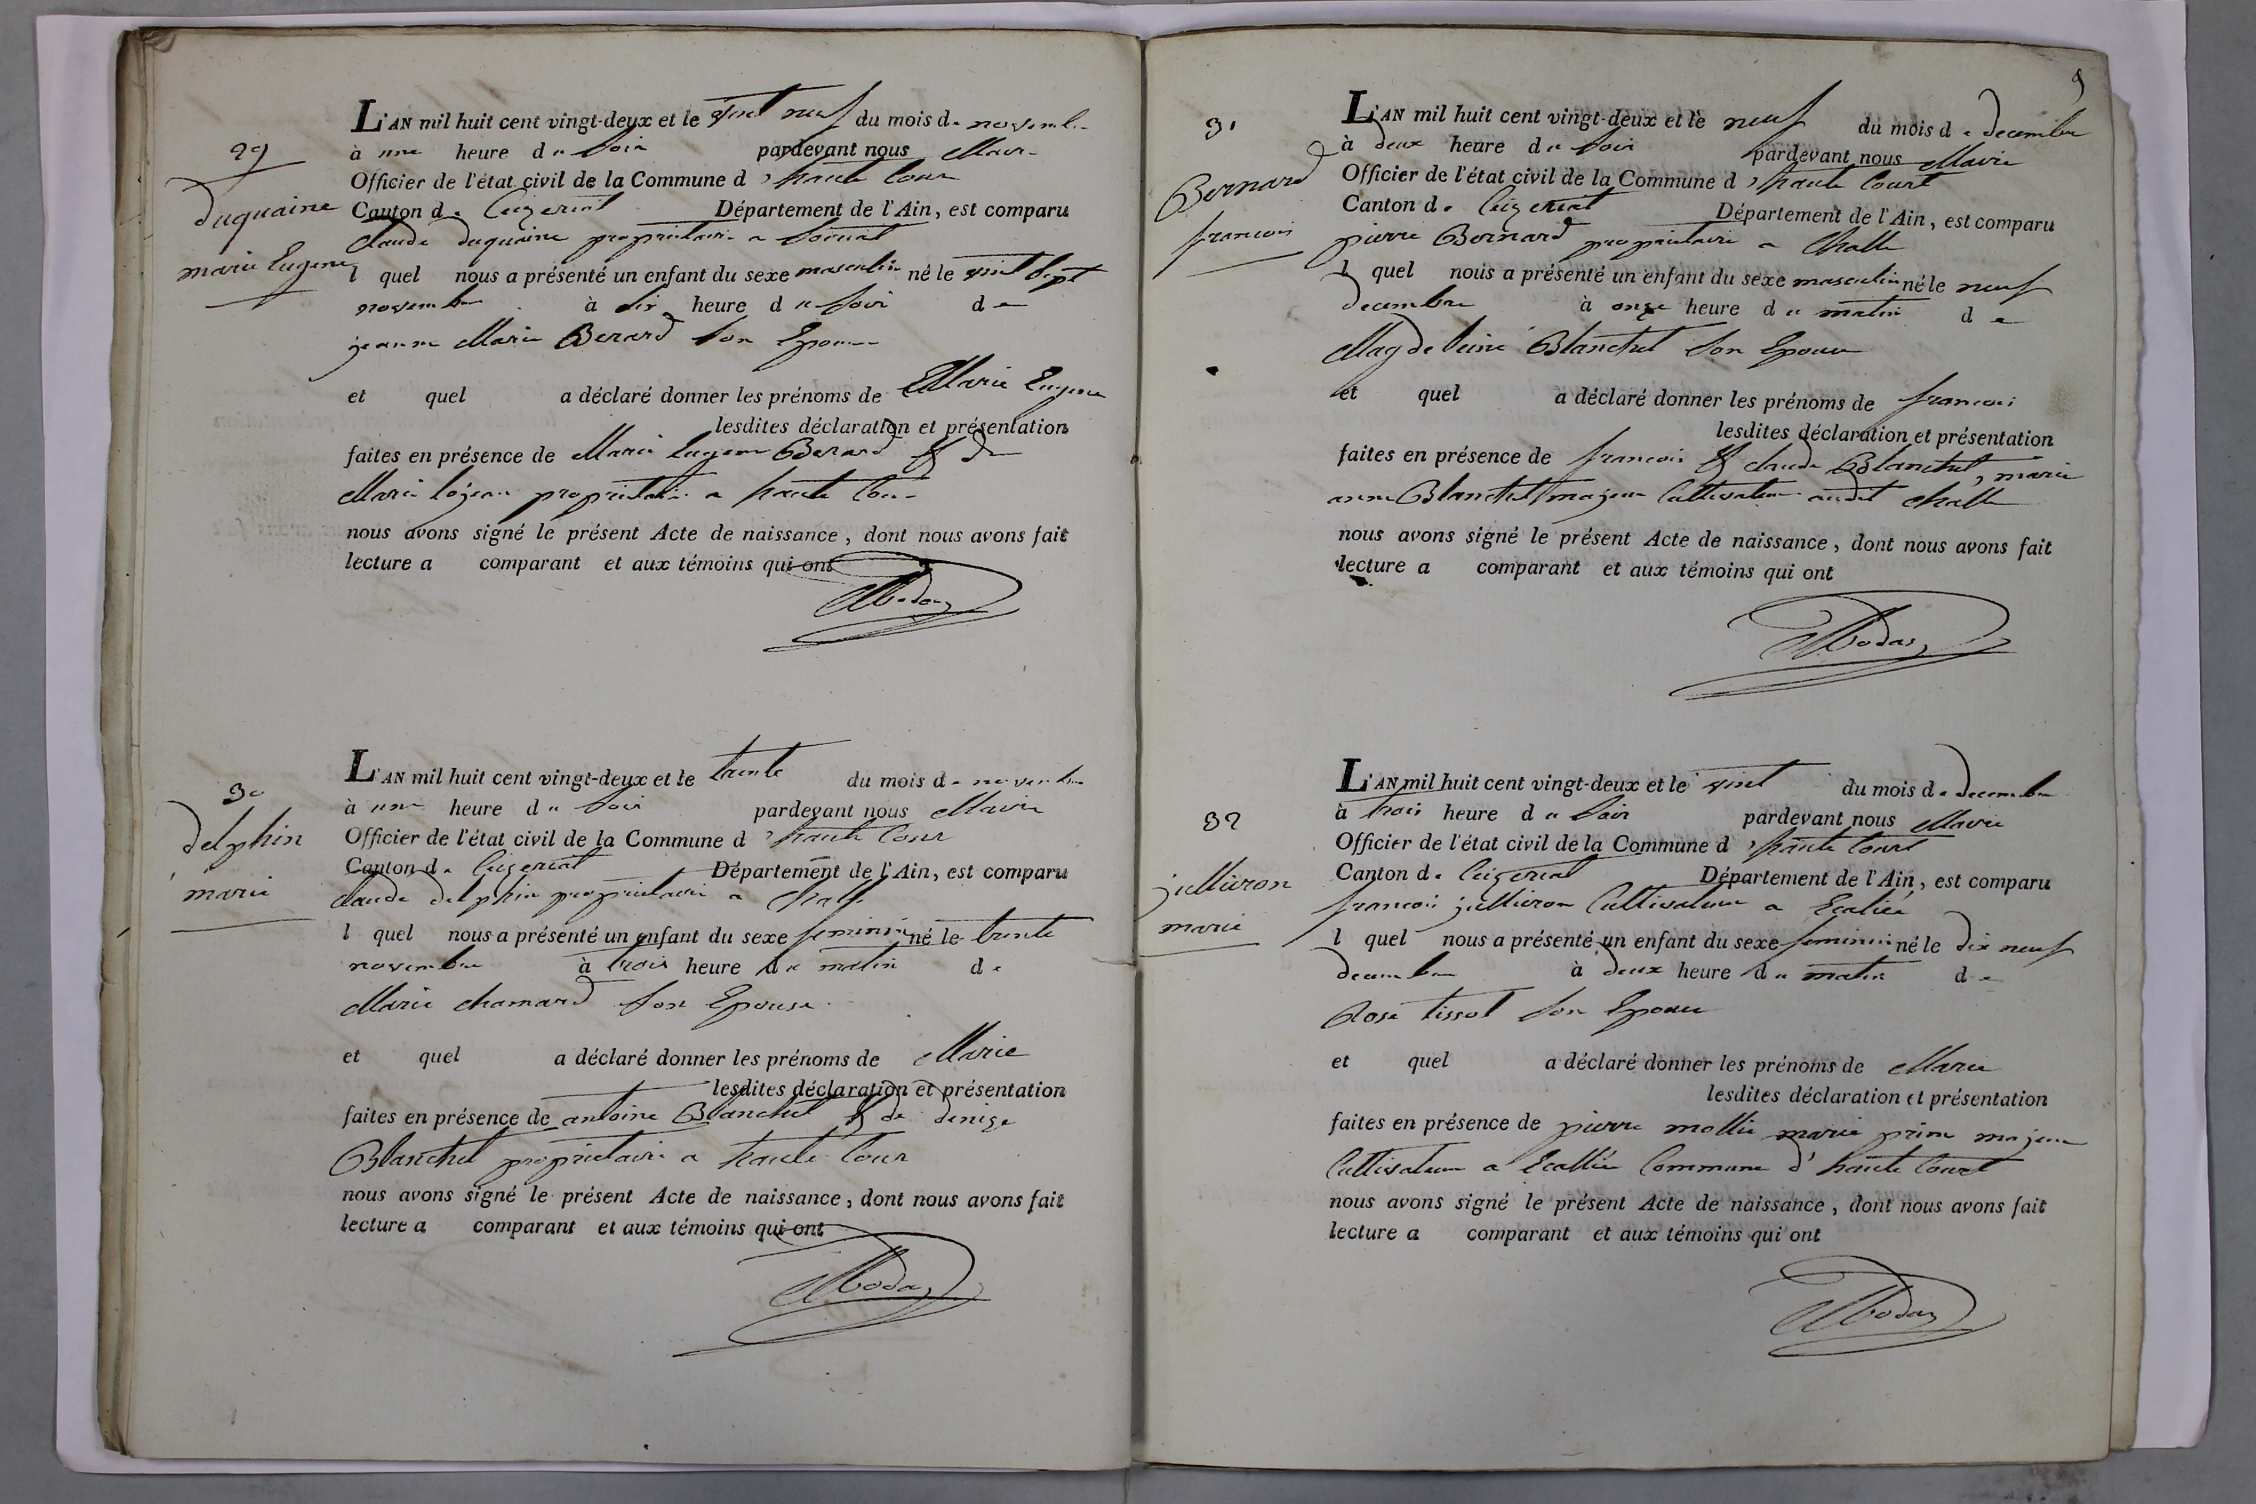 29
duquaine
marie Eugene
L'AN mil huit cent vingt-deux et le vint neuf du mois de novembre
à une heure du soir pardevant nous Maire
Officier de l'état civil de la Commune d'haute Cour
Canton de Ceizeriat Département de l'Ain, est comparu
Claude duquaine propriétaire a
l quel nous a présenté un enfant du sexe masculin né le vint sept
novembre à dix heure du soir de
jeanne Marie Berard son Epouse
et quel a déclaré donner les prénoms de Marie Eugene
lesdites déclaration et présentation
faites en présence de Marie Eugene Berard & de
Marie propriétaire a haute Cour
nous avons signé le présent Acte de naissance, dont nous avons fait
lecture a comparant et aux témoins qui ont
30
delphin
marie
L'AN mil huit cent vingt-deux et le trente du mois de novembre
à une heure du soir pardevant nous Maire
Officier de l'état civil de la Commune d'haute Cour
Canton de Ceizeriat Département de l'Ain, est comparu
Claude delphin propriétaire a Challe
l quel nous a présenté un enfant du sexe feminin né le trente
novembre à trois heure du matin de
Marie chamard son Epouse
et quel a déclaré donner les prénoms de Marie
lesdites déclaration et présentation
faites en présence de antoine Blanchet & de denize
Blanchet propriétaire a haute Cour
nous avons signé le présent Acte de naissance, dont nous avons fait
lecture a comparant et aux témoins qui ont
9
31
Bernard
francois
L'AN mil huit cent vingt-deux et le neuf du mois de decembre
à deux heure du soir pardevant nous Maire
Officier de l'état civil de la Commune d'haute Court
Canton de Ceizeriat Département de l'Ain, est comparu
pierre Bernard propriétaire a Challe
l quel nous a présenté un enfant du sexe masculin né le neuf
decembre à onze heure du matin de
Magdeleine Blanchet son Epouse
et quel a déclaré donner les prénoms de francois
lesdites déclaration et présentation
faites en présence de francois & claude Blanchet, marie
anne Blanchet majeur Cultivateur audit challe
nous avons signé le présent Acte de naissance, dont nous avons fait
lecture a comparant et aux témoins qui ont
32
jullieron
marie
L'AN mil huit cent vingt-deux et le vint du mois de decembre
à trois heure du soir pardevant nous Maire
Officier de l'état civil de la Commune d'haute Court
Canton de Ceizeriat Département de l'Ain, est comparu
francois jullieron Cultivateur a
l quel nous a présenté un enfant du sexe feminin né le dix neuf
decembre à deux heure du matin de
Rose tissot son Epouse
et quel a déclaré donner les prénoms de Marie
lesdites déclaration et présentation
faites en présence de pierre mollie marie majeur
Cultivateur a Commune d'haute Court
nous avons signé le présent Acte de naissance, dont nous avons fait
lecture a comparant et aux témoins qui ont